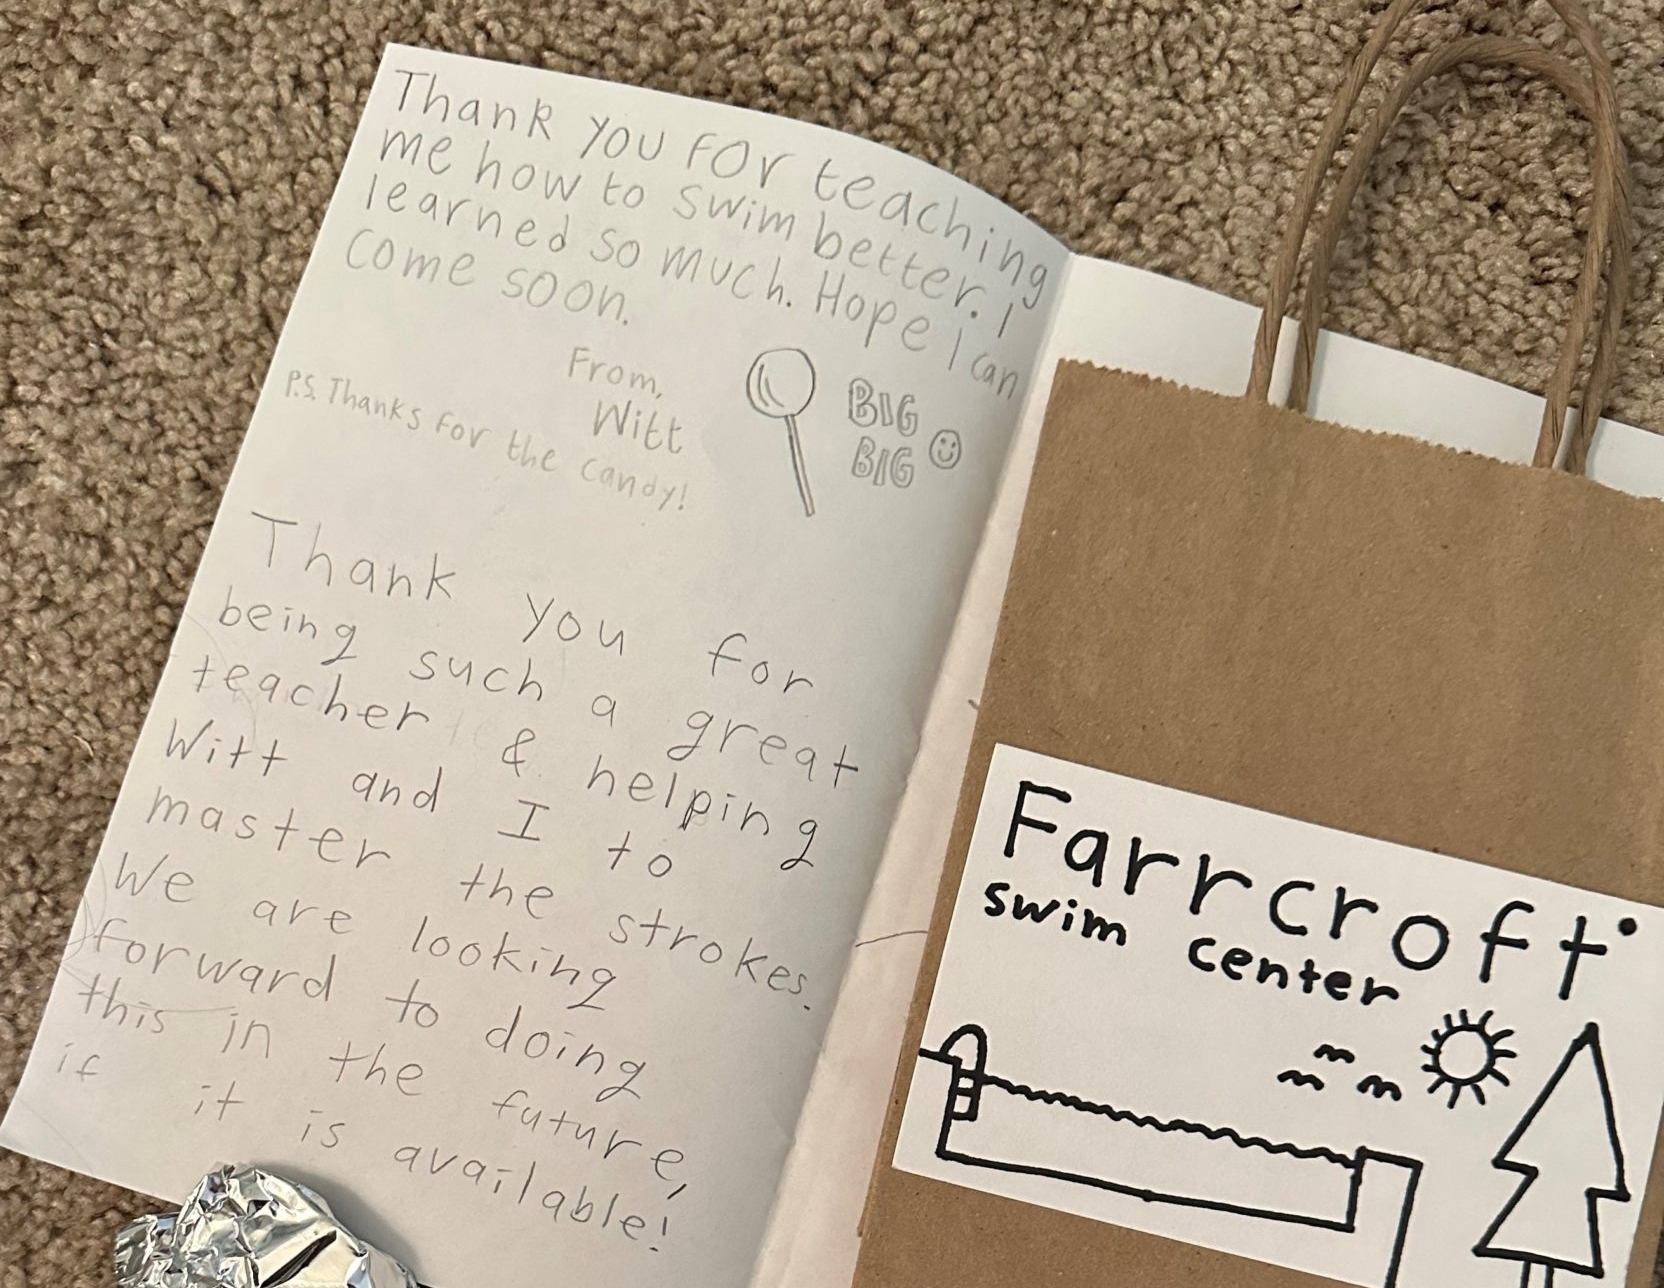 Thank you For teaching
me how to swim better. I
learned so much. Hope I can
come soon.
From,
Witt
P.S. Thanks for the candy!
BIG
BIG
Thank you for
being such a great
teacher & helping
Witt and I to
master the strokes.
We are looking
forward to doing
this in the future,
if it is available!
Farrcroft
swim center